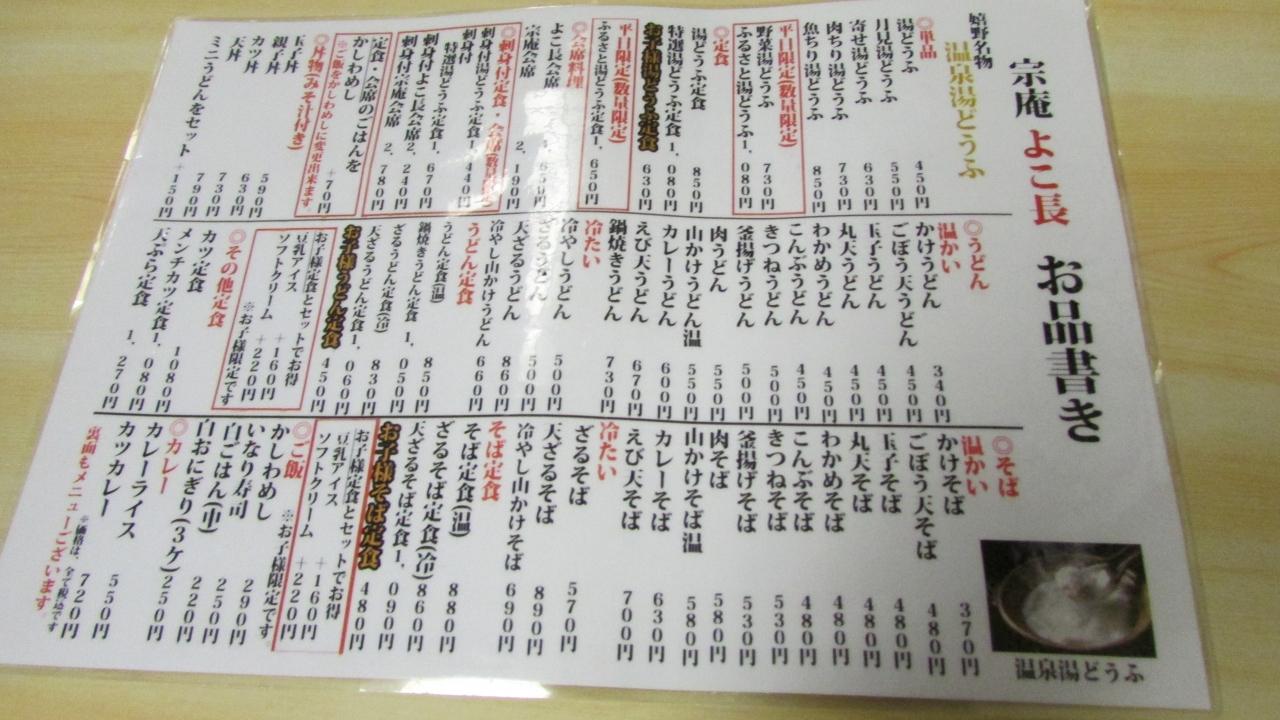 宗庵 よこ長 お品書き
嬉野名物
温泉湯どうふ
◎単品
湯どうふ 450円
月見湯どうふ 550円
寄せ湯どうふ 630円
肉ちり湯どうふ 730円
魚ちり湯どうふ 850円
平日限定(数量限定)
野菜湯どうふ 730円
ふるさと湯どうふ 1,080円
◎定食
湯どうふ定食 850円
特選湯どうふ定食 1,080円
お子様湯どうふ定食 630円
平日限定(数量限定)
ふるさと湯どうふ定食 1,650円
◎会席料理
よこ長会席
宗庵会席 2,190円
◎刺身付定食・会席
刺身付湯どうふ定食 1,440円
刺身付
特選湯どうふ定食 1,670円
刺身付よこ長会席 2,240円
刺身付宗庵会席 2,780円
定食・会席のごはんを
かしわめし +70円
※ご飯をかしわめしに変更出来ます。
◎丼物(みそ汁付き)
玉子丼 590円
親子丼 630円
カツ丼 730円
天丼 790円
ミニうどんをセット +150円
◎うどん
温かい
かけうどん 340円
ごぼう天うどん 450円
玉子うどん 450円
丸天うどん 450円
わかめうどん 450円
こんぶうどん 450円
きつねうどん 500円
釜揚げうどん 500円
肉うどん 550円
山かけうどん温 550円
カレーうどん 600円
えび天うどん 670円
鍋焼きうどん 730円
冷たい
冷やしうどん 500円
ざるうどん 500円
天ざるうどん 860円
冷やし山かけうどん 660円
うどん定食
うどん定食(温) 850円
鍋焼きうどん定食 1,050円
ざるうどん定食(冷) 830円
天ざるうどん定食 1,060円
お子様うどん定食 450円
お子様定食とセットでお得
豆乳アイス +160円
ソフトクリーム +220円
※お子様限定です
◎その他定食
カツ定食 1080円
メンチカツ定食 1,080円
天ぷら定食 1,270円
◎そば
温かい
かけそば 370円
ごぼう天そば 480円
玉子そば 480円
丸天そば 480円
わかめそば 480円
こんぶそば 480円
きつねそば 530円
釜揚げそば 530円
肉そば 580円
山かけそば温 580円
カレーそば 630円
えび天そば 700円
冷たい
ざるそば 570円
天ざるそば 890円
冷やし山かけそば 690円
そば定食
そば定食(温) 880円
ざるそば定食(冷) 860円
天ざるそば定食 1,090円
お子様そば定食 480円
お子様定食とセットでお得
豆乳アイス +160円
ソフトクリーム +220円
※お子様限定です
◎ご飯
かしわめし 290円
いなり寿司 250円
白ごはん(中) 220円
白おにぎり(3ケ) 250円
◎カレー
カレーライス 550円
カツカレー 720円
※価格は、全て税込です
裏面もメニューございます
温泉湯どうふ